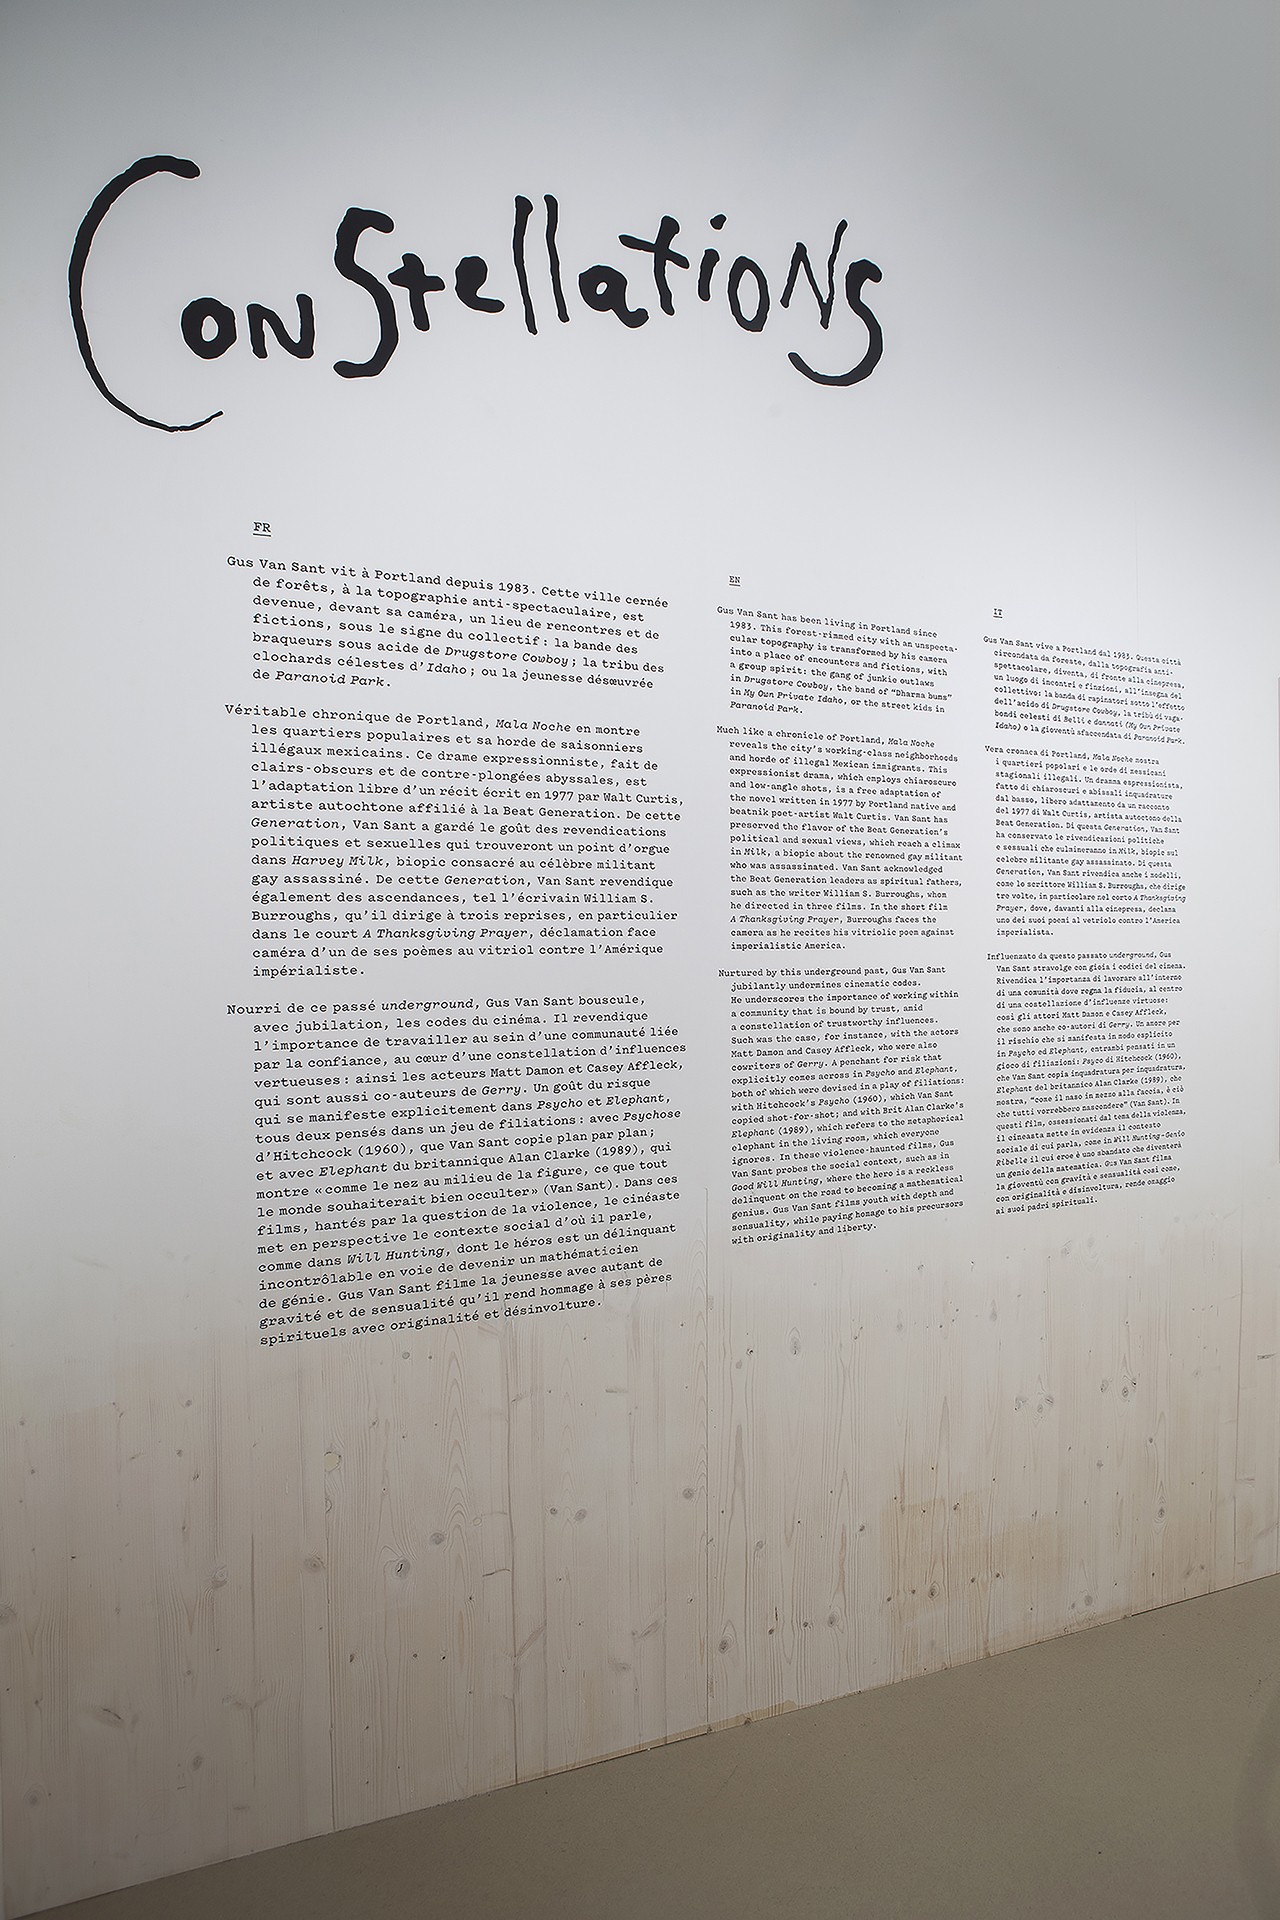 Constellations
FR
Gus Van Sant vit à Portland depuis 1983. Cette ville cernée
de forêts, à la topographie anti-spectaculaire, est
devenue, devant sa caméra, un lieu de rencontres et de
fictions, sous le signe du collectif : la bande des
braqueurs sous acide de Drugstore Cowboy ; la tribu des
clochards célestes d’Idaho ; ou la jeunesse désœuvrée
de Paranoid Park.
Véritable chronique de Portland, Mala Noche en montre
les quartiers populaires et sa horde de saisonniers
illégaux mexicains. Ce drame expressionniste, fait de
clairs-obscurs et de contre-plongées abyssales, est
l’adaptation libre d’un récit écrit en 1977 par Walt Curtis,
artiste autochtone affilié à la Beat Generation. De cette
Generation, Van Sant a gardé le goût des revendications
politiques et sexuelles qui trouveront un point d’orgue
dans Harvey Milk, biopic consacré au célèbre militant
gay assassiné. De cette Generation, Van Sant revendique
également des ascendances, tel l’écrivain William S.
Burroughs, qu’il dirige à trois reprises, en particulier
dans le court A Thanksgiving Prayer, déclamation face
caméra d’un de ses poèmes au vitriol contre l’Amérique
impérialiste.
Nourri de ce passé underground, Gus Van Sant bouscule,
avec jubilation, les codes du cinéma. Il revendique
l’importance de travailler au sein d’une communauté liée
par la confiance, au cœur d’une constellation d’influences
vertueuses : ainsi les acteurs Matt Damon et Casey Affleck,
qui sont aussi co-auteurs de Gerry. Un goût du risque
qui se manifeste explicitement dans Psycho et Elephant,
tous deux pensés dans un jeu de filiations : avec Psychose
d’Hitchcock (1960), que Van Sant copie plan par plan ;
et avec Elephant du britannique Alan Clarke (1989), qui
montre « comme le nez au milieu de la figure, ce que tout
le monde souhaiterait bien occulter » (Van Sant). Dans ces
films, hantés par la question de la violence, le cinéaste
met en perspective le contexte social d’où il parle,
comme dans Will Hunting, dont le héros est un délinquant
incontrôlable en voie de devenir un mathématicien
de génie. Gus Van Sant filme la jeunesse avec autant de
gravité et de sensualité qu’il rend hommage à ses pères
spirituels avec originalité et désinvolture.
EN
Gus Van Sant has been living in Portland since
1983. This forest-rimmed city with an unspecta-
cular topography is transformed by his camera
into a place of encounters and fictions, with
a group spirit: the gang of junkie outlaws
in Drugstore Cowboy, the band of “Dharma bums”
in My Own Private Idaho, or the street kids in
Paranoid Park.
Much like a chronicle of Portland, Mala Noche
reveals the city’s working-class neighborhoods
and horde of illegal Mexican immigrants. This
expressionist drama, which employs chiaroscuro
and low-angle shots, is a free adaptation of
the novel written in 1977 by Portland native and
beatnik poet-artist Walt Curtis. Van Sant has
preserved the flavor of the Beat Generation’s
political and sexual views, which reach a climax
in Milk, a biopic about the renowned gay militant
who was assassinated. Van Sant acknowledged
the Beat Generation leaders as spiritual fathers,
such as the writer William S. Burroughs, whom
he directed in three films. In the short film
A Thanksgiving Prayer, Burroughs faces the
camera as he recites his vitriolic poem against
imperialistic America.
Nurtured by this underground past, Gus Van Sant
jubilantly undermines cinematic codes.
He underscores the importance of working within
a community that is bound by trust, amid
a constellation of trustworthy influences.
Such was the case, for instance, with the actors
Matt Damon and Casey Affleck, who were also
cowriters of Gerry. A penchant for risk that
explicitly comes across in Psycho and Elephant,
both of which were devised in a play of filiations:
with Hitchcock’s Psycho (1960), which Van Sant
copied shot-for-shot; and with Brit Alan Clarke’s
Elephant (1989), which refers to the metaphorical
elephant in the living room, which everyone
ignores. In these violence-haunted films, Gus
Van Sant probes the social context, such as in
Good Will Hunting, where the hero is a reckless
delinquent on the road to becoming a mathematical
genius. Gus Van Sant films youth with depth and
sensuality, while paying homage to his precursors
with originality and liberty.
IT
Gus Van Sant vive a Portland dal 1983. Questa città
circondata da foreste, dalla topografia anti-
spettacolare, diventa, di fronte alla cinepresa,
un luogo di incontri e finzioni, all’insegna del
collettivo: la banda di rapinatori sotto l’effetto
dell’acido di Drugstore Cowboy, la tribù di vaga-
bondi celesti di Belli e dannati (My Own Private
Idaho) o la gioventù sfaccendata di Paranoid Park.
Vera cronaca di Portland, Mala Noche mostra
i quartieri popolari e le orde di messicani
stagionali illegali. Un dramma espressionista,
fatto di chiaroscuri e abissali inquadrature
dal basso, libero adattamento da un racconto
del 1977 di Walt Curtis, artista autoctono della
Beat Generation. Di questa Generation, Van Sant
ha conservato le rivendicazioni politiche
e sessuali che culmineranno in Milk, biopic sul
celebre militante gay assassinato. Di questa
Generation, Van Sant rivendica anche i modelli,
come lo scrittore William S. Burroughs, che dirige
tre volte, in particolare nel corto A Thanksgiving
Prayer, dove, davanti alla cinepresa, declama
uno dei suoi poemi al vetriolo contro l’America
imperialista.
Influenzato da questo passato underground, Gus
Van Sant stravolge con gioia i codici del cinema.
Rivendica l’importanza di lavorare all’interno
di una comunità dove regna la fiducia, al centro
di una costellazione d’influenze virtuose:
così gli attori Matt Damon e Casey Affleck,
che sono anche co-autori di Gerry. Un amore per
il rischio che si manifesta in modo esplicito
in Psycho ed Elephant, entrambi pensati in un
gioco di filiazioni: Psyco di Hitchcock (1960),
che Van Sant copia inquadratura per inquadratura,
Elephant del britannico Alan Clarke (1989), che
mostra, “come il naso in mezzo alla faccia, è ciò
che tutti vorrebbero nascondere” (Van Sant). In
questi film, ossessionati dal tema della violenza,
il cineasta mette in evidenza il contesto
sociale di cui parla, come in Will Hunting-Genio
Ribelle il cui eroe è uno sbandato che diventerà
un genio della matematica. Gus Van Sant filma
la gioventù con gravità e sensualità così come,
con originalità e disinvoltura, rende omaggio
ai suoi padri spirituali.